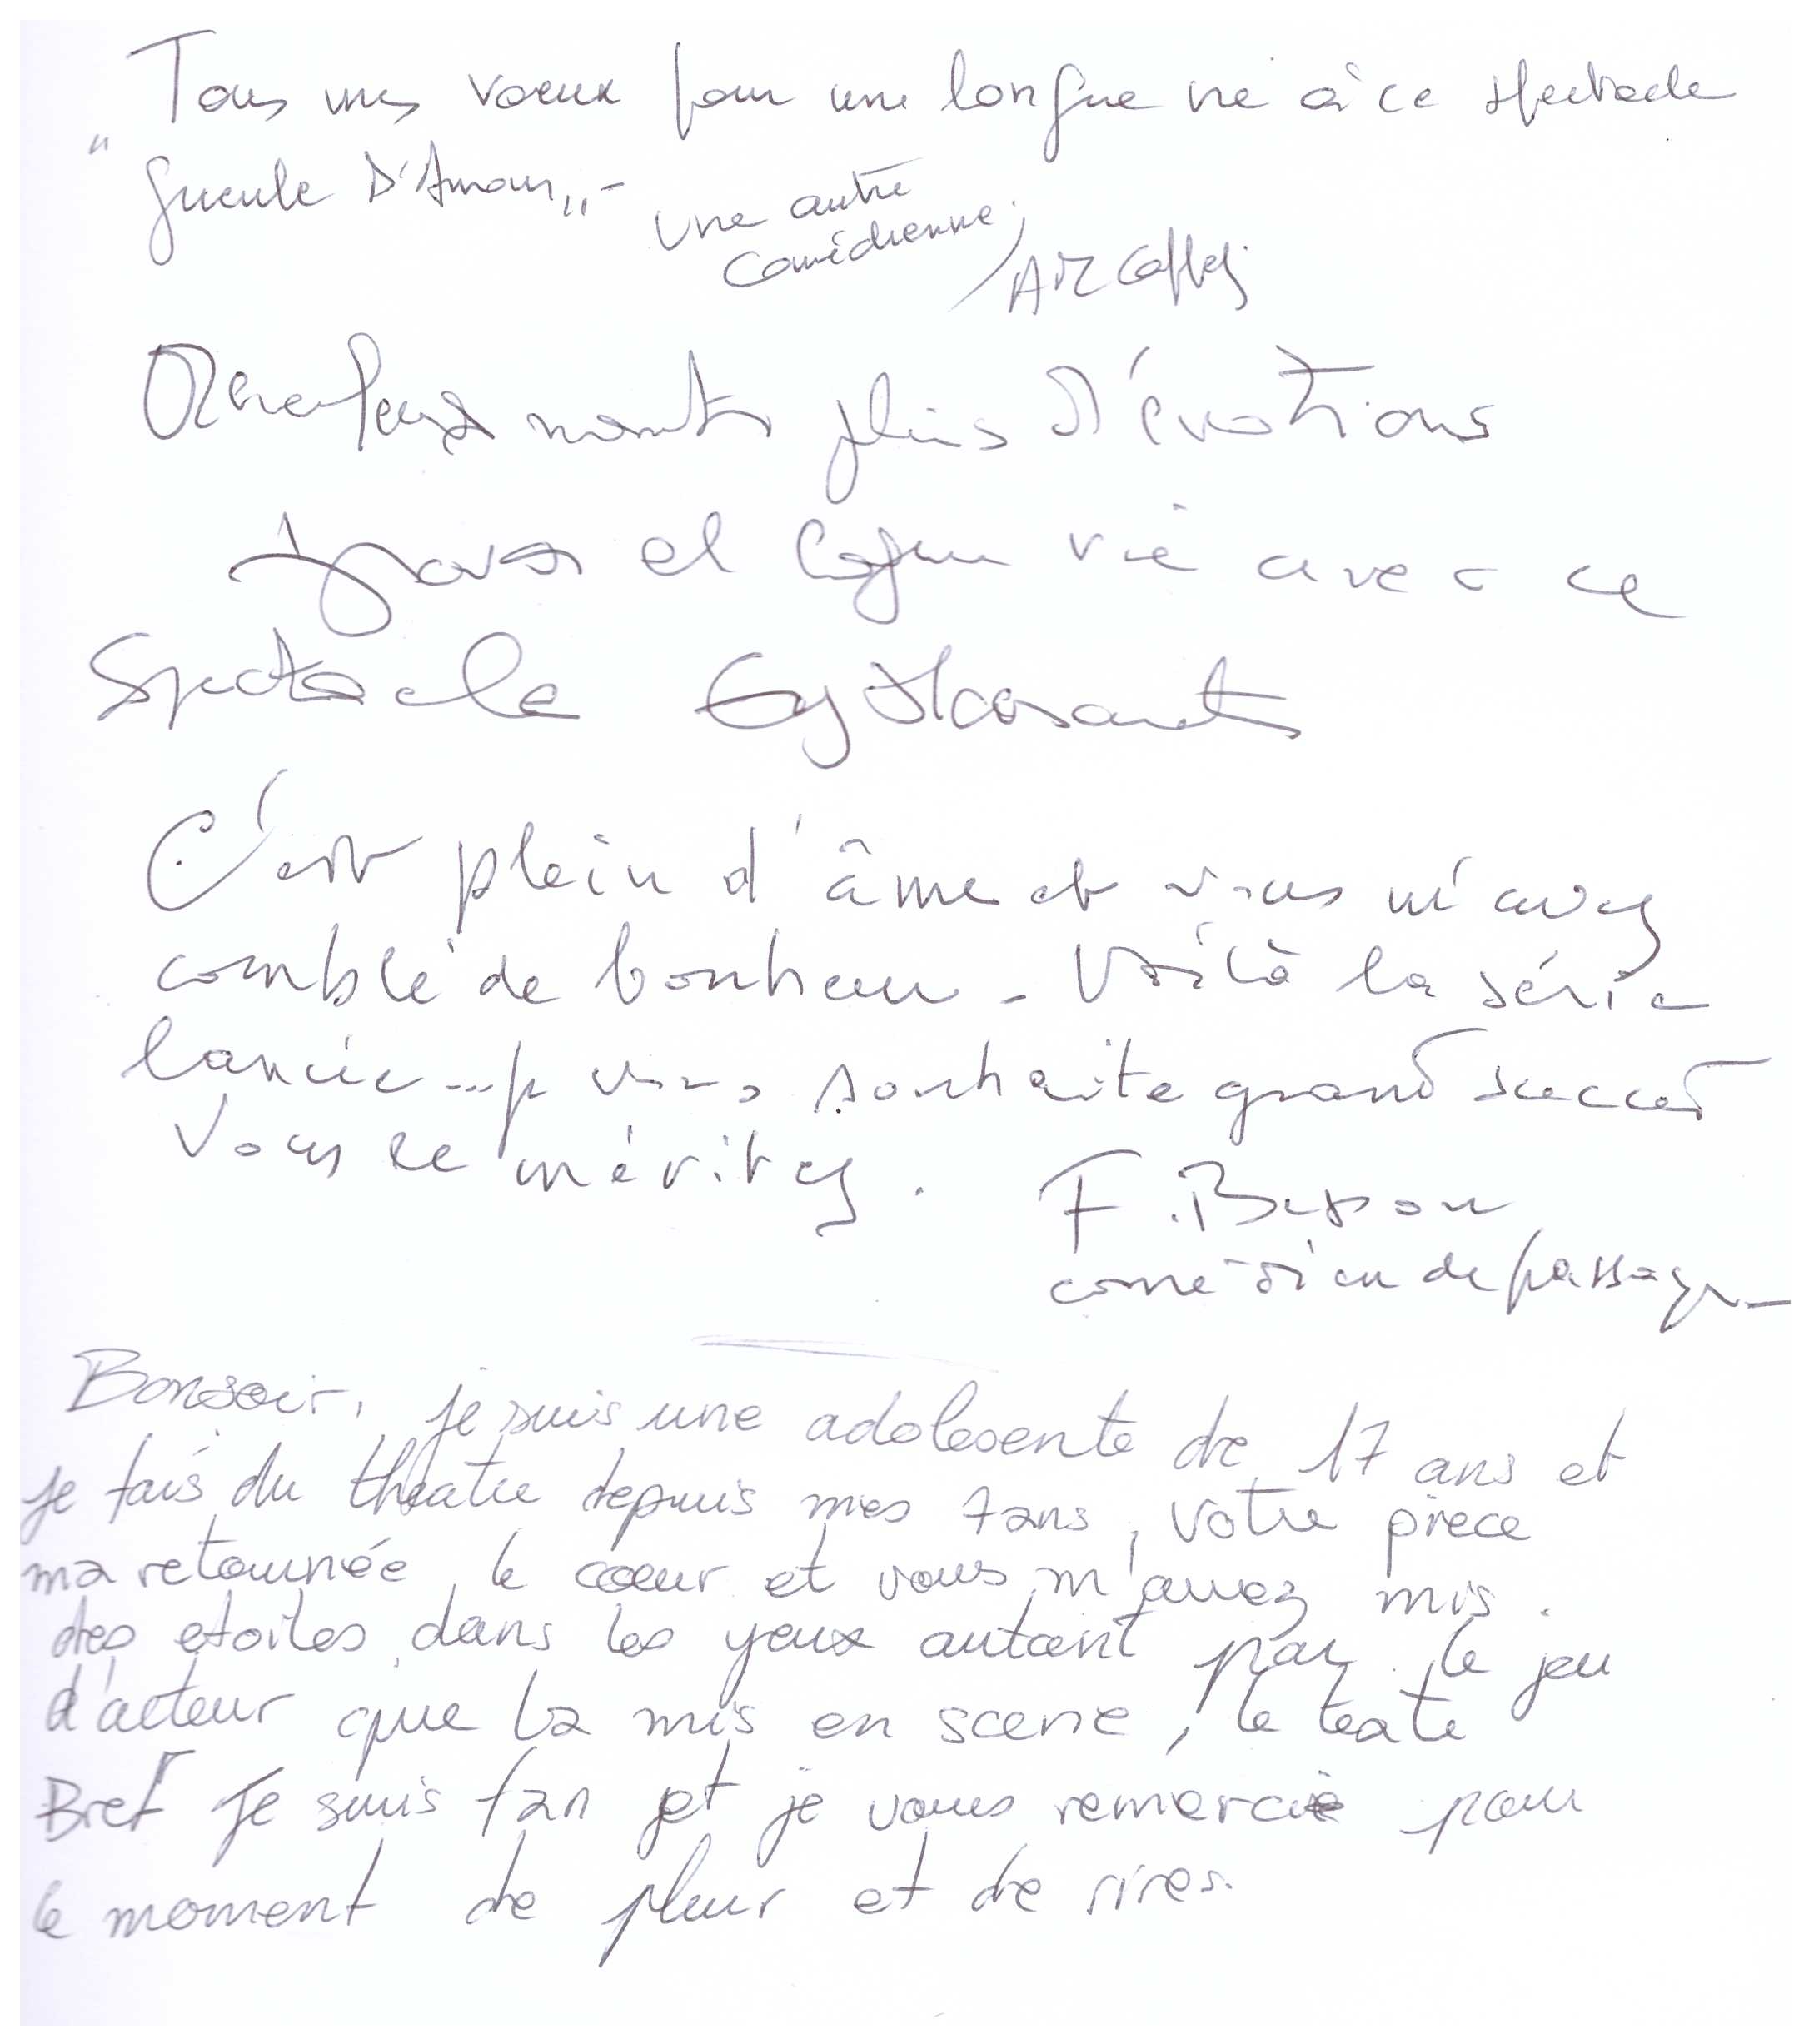 Tous mes vœux pour une longue vie à ce spectacle
"Gueule D'Amour". -
une autre
comédienne.
Merveilleux moment plein d'émotions
Bravo et longue vie avec ce
Spectacle
C'est plein d'âme et vous m'avez
comblé de bonheur - Voilà la série
lancée... je vous souhaite grand succès
Vous le méritez.
F. Besson
comédien de passage
Bonsoir, je suis une adolesente de 17 ans et
je fais du theatre depuis mes 7 ans, votre pièce
ma retournée le cœur et vous m'avez mis
des etoiles dans les yeux autant par le jeu
d'acteur que la mis en scene, le texte
Bref Je suis fan et je vous remercie pour
le moment de pleur et de rires.